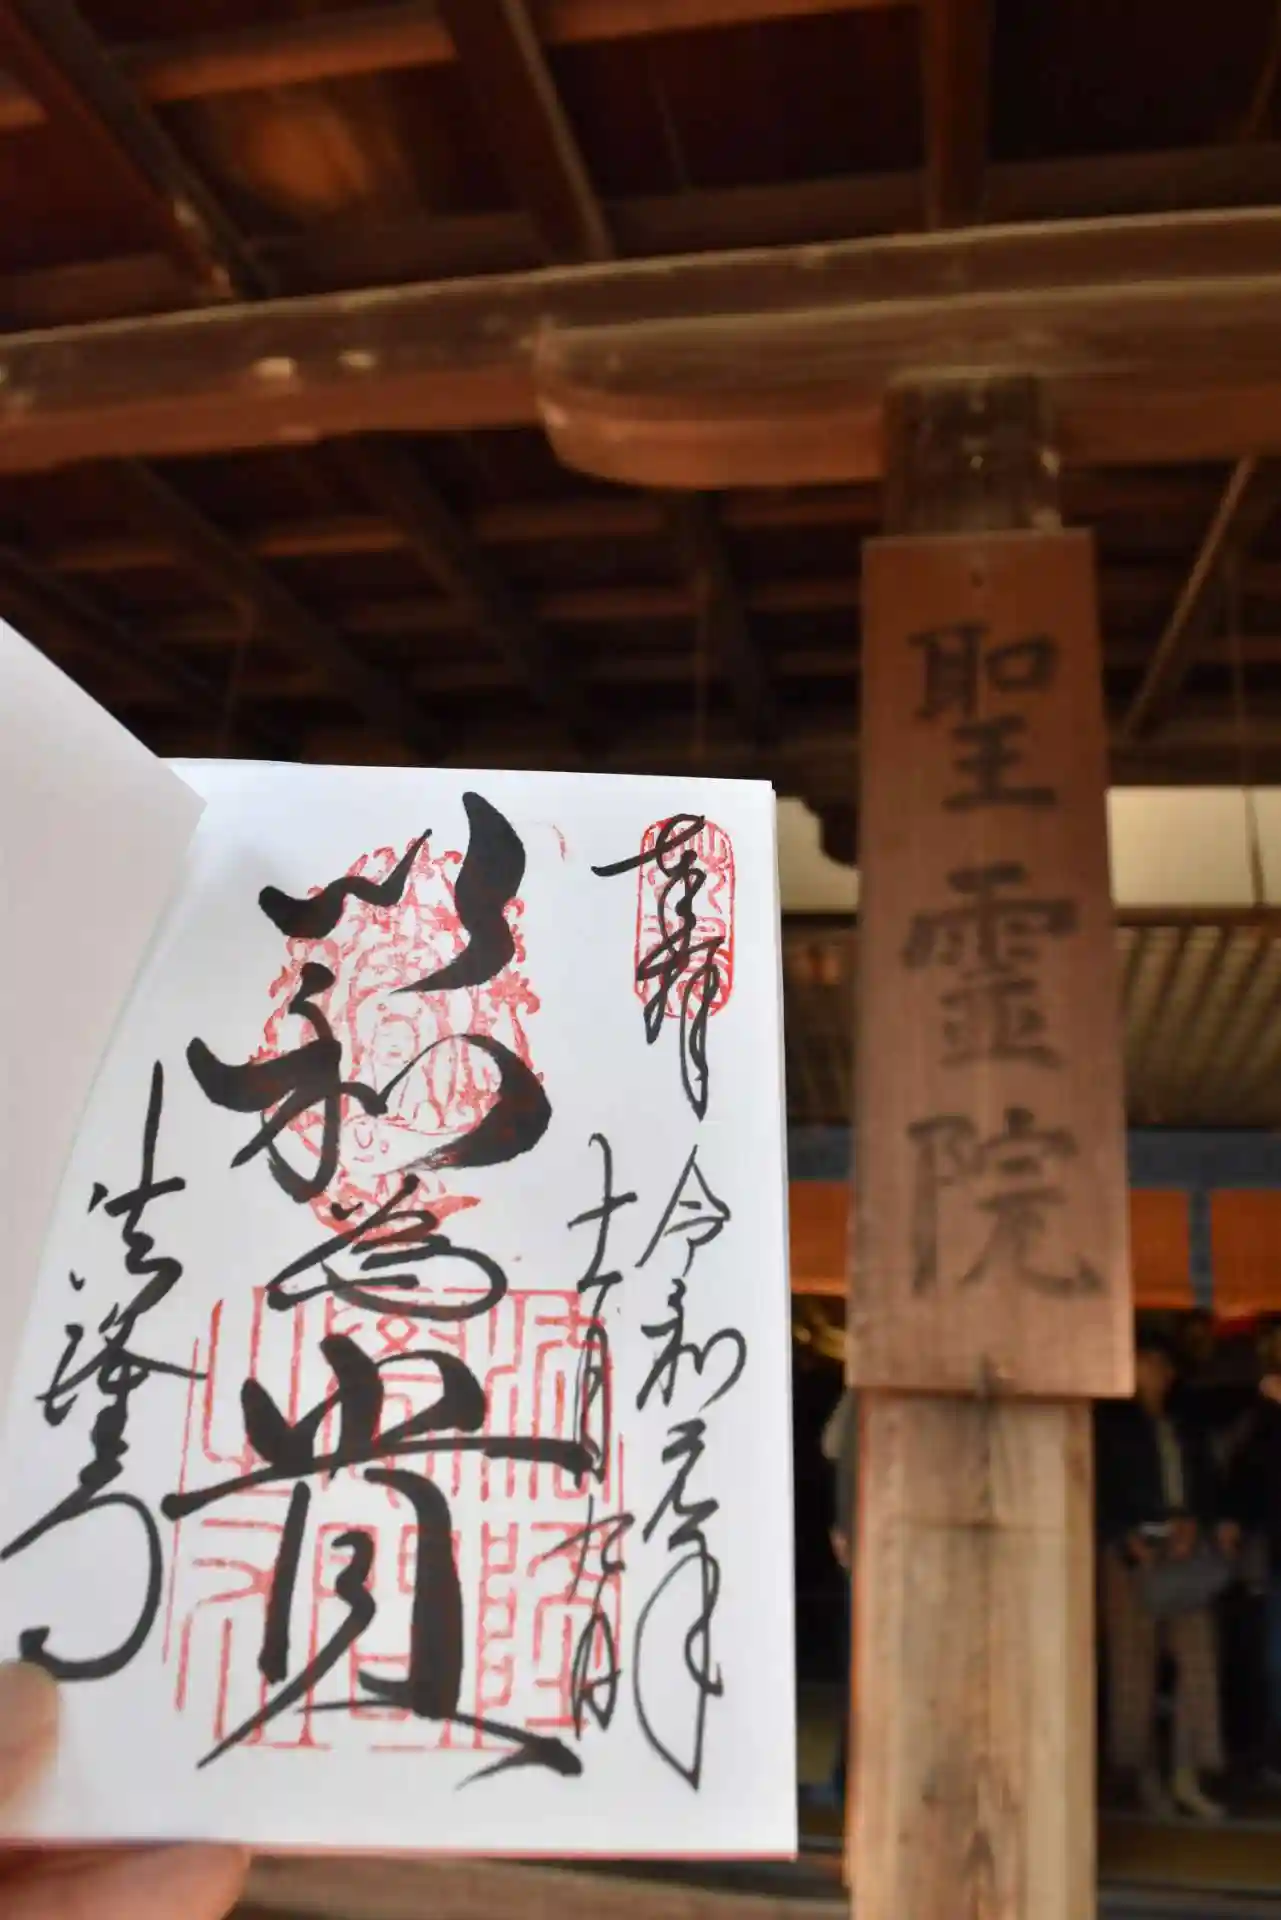 奉拝
令和元年
十一月九日
以和為貴
法隆寺
聖霊院